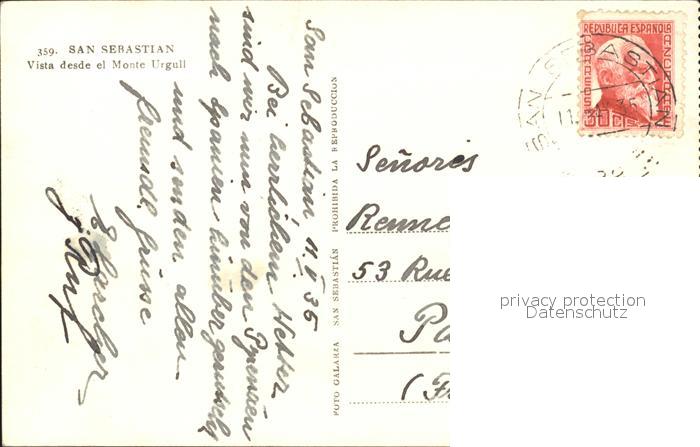 359. SAN SEBASTIAN
Vista desde el Monte Urgull
San Sebastian 11. V 35
Bei herrlichem Wetter
sind wir nun von den Pyrenäen
nach Spanien hinüber gerutscht
und senden allen
freundl. Grüsse
FOTO GALARZA SAN SEBASTIÁN PROHIBIDA LA REPRODUCCION
REPUBLICA ESPAÑOLA
SAN SEBASTIAN
Señores
Renne
53 Rue
Pa
(F
privacy protection
Datenschutz